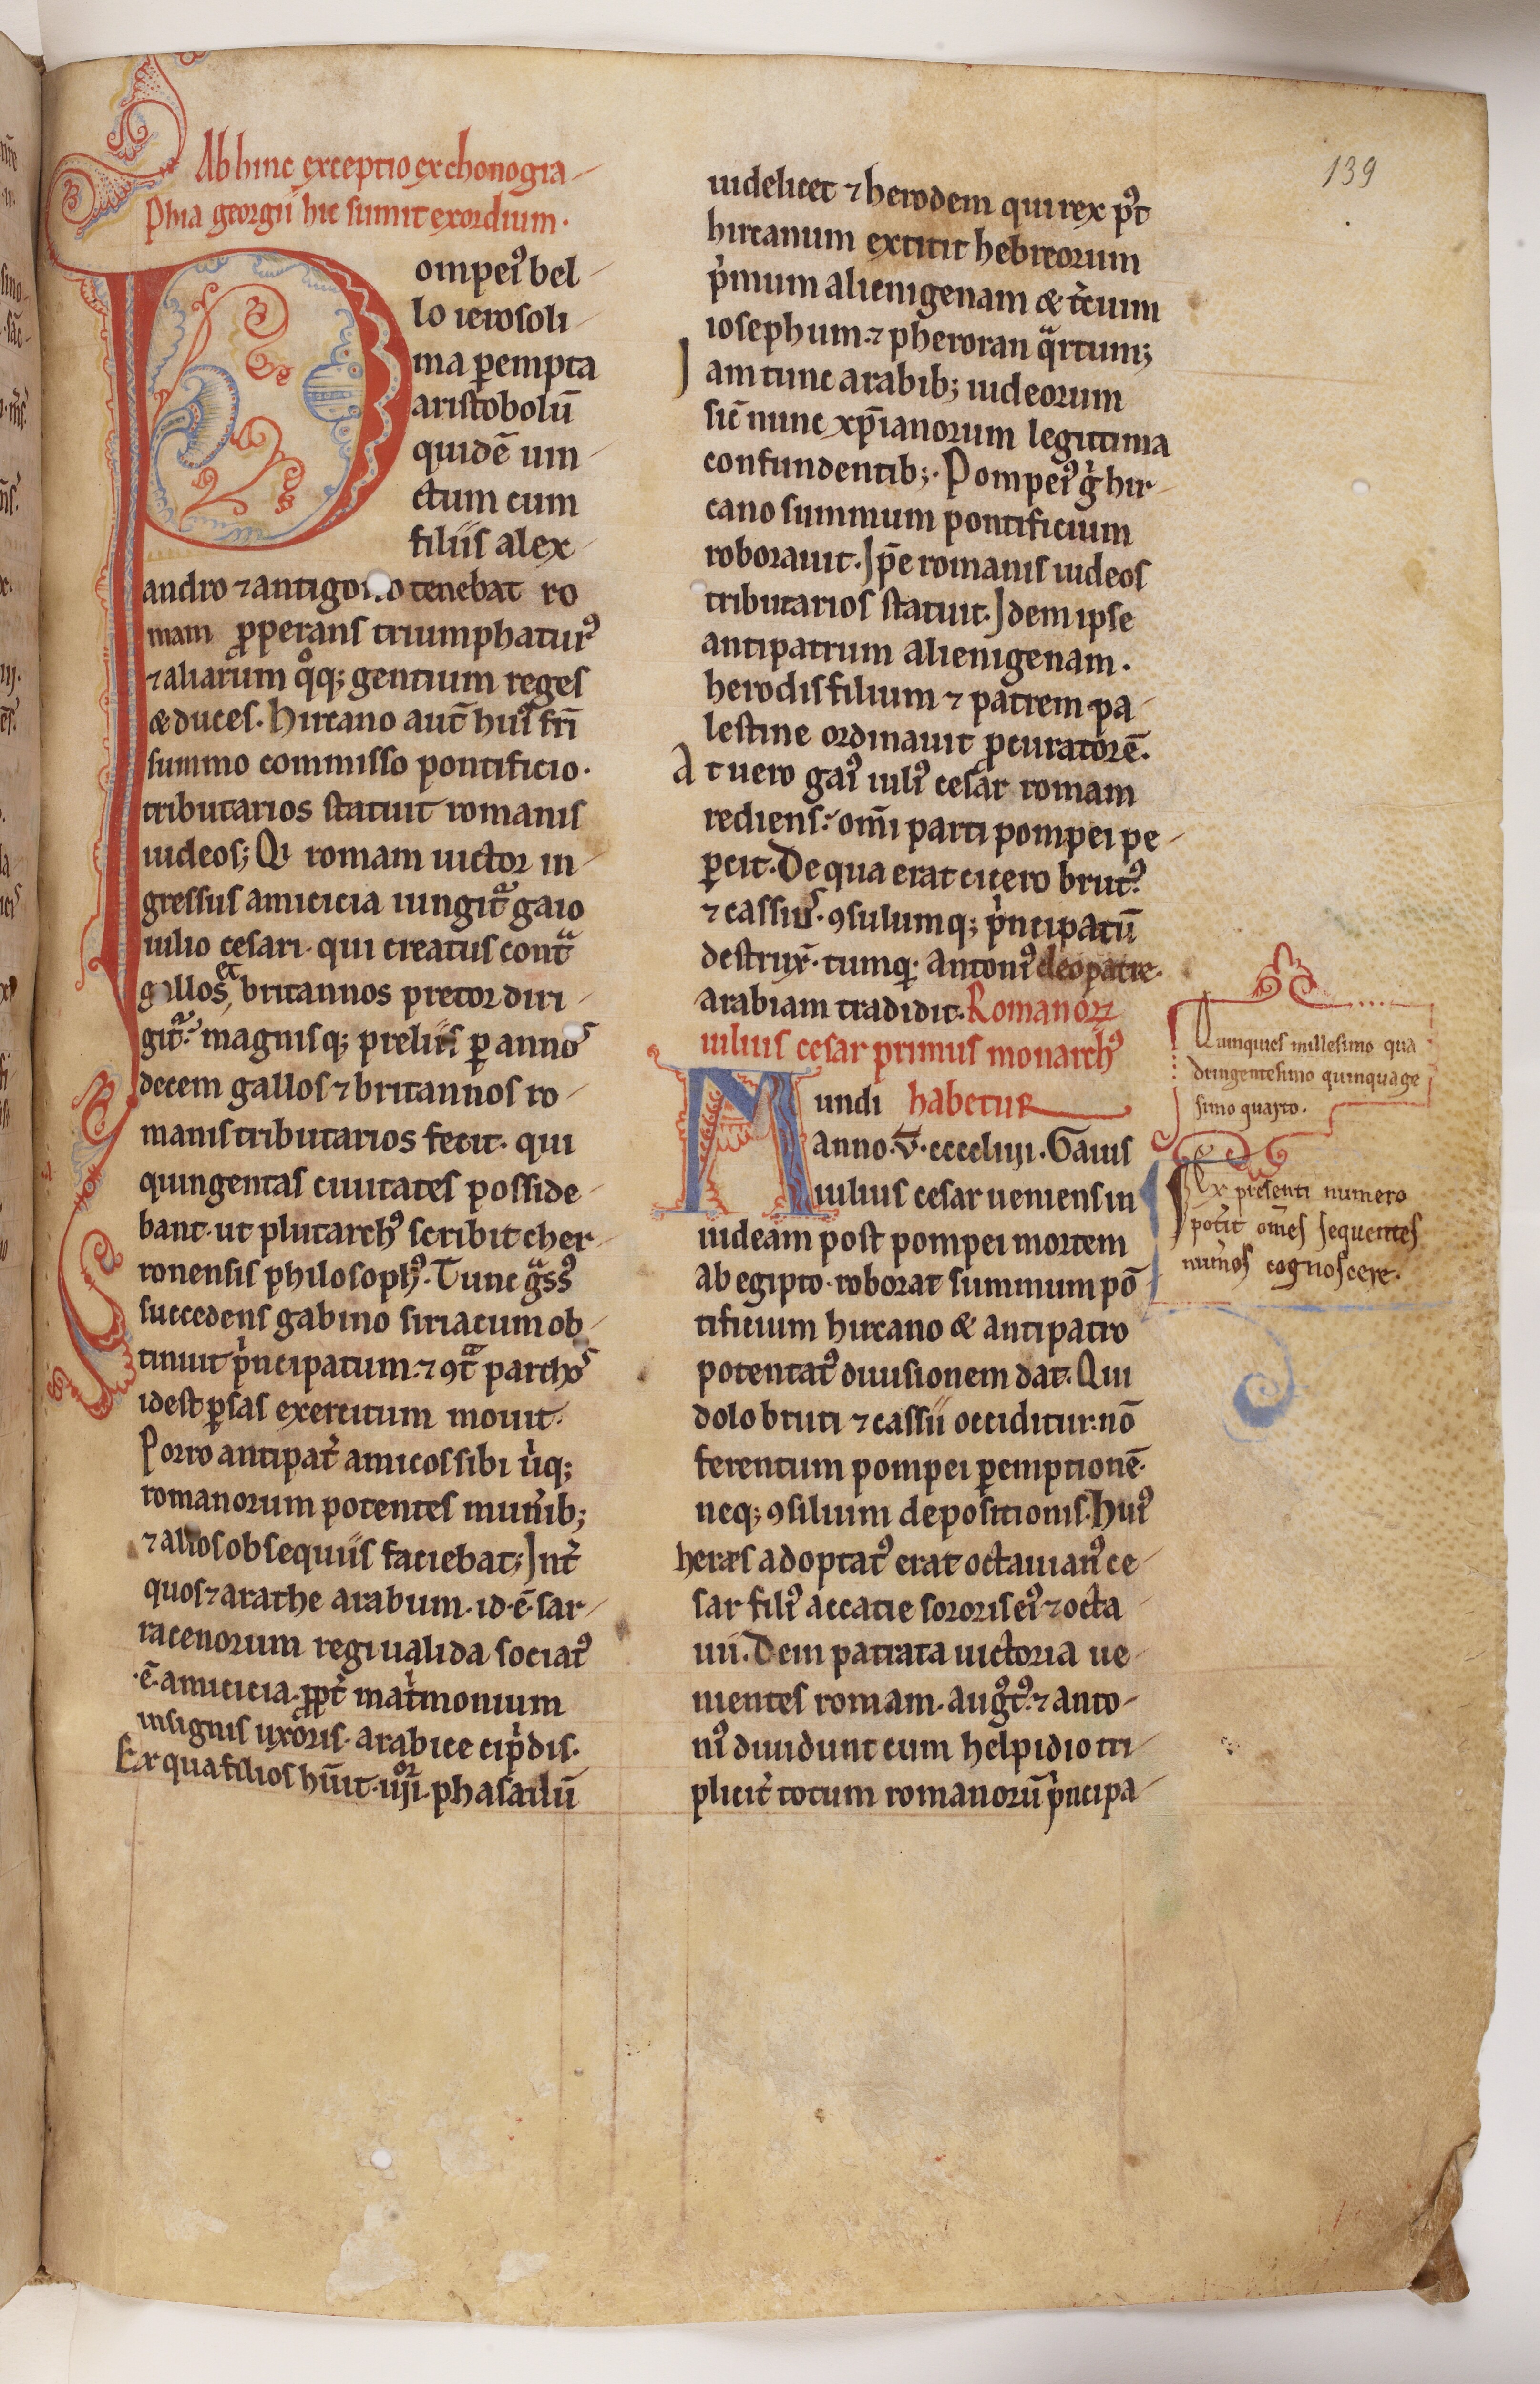 139
Ab hinc exceptio ex chonogra-
phia georgii hic sumit exordium.
Pompei᷒ bel-
lo ierosoli-
ma ꝑempta
aristobolū
quidē uin-
ctum cum
filiis alex-
andro ⁊ antigono tenebat ro
mam ꝓperans triumphatur᷒
⁊ aliarum qͦq; gentium reges
& duces. Hircano aut̄ hui᷒ fr̄i
summo commisso pontificio.
tributarios statuit romanis
iudeos; Qͥ romam uictor in-
gressus amicicia iungitᷓ gaio
iulio cesari. qui creatus contᷓ
gallos et britannos pretor diri-
gitᷓ. magnisq; preliis ꝑ annos
decem gallos ⁊ britannos ro-
manis tributarios fecit. qui
quingentas ciuitates posside-
bant. ut plutarch᷒ scribit cher-
ronensis philosoph᷒. Tunc gᷓss᷒
succedens gabino siriacum ob-
tinuit pͥncipatum. ⁊ ꝯtᷓ parthos
id est ꝑsas exercitum mouit.
Porro antipat̾ amicos sibi ut̾q;
romanorum potentes mun̾ib;
⁊ alios obsequiis faciebat; Int̾
quos ⁊ arathe arabum. id .ē. sar-
racenorum regi ualida sociat᷒
.ē. amicicia. ꝓpt̾ mat̾monium
insignis uxoris. arabice cipͥdis.
Ex qua filios hūit .iiijᵒʳ. phasailū
uidelicet ⁊ herodem qui rex p᷒t
hircanum extitit hebreorum
pͥmum alienigenam & t̾cium
iosephum. ⁊ pheroran qᷓrtum;
Jam tunc arabib; iudeorum
sic̄ nunc xp̄ianorum legittima
confundentib;. Pompei᷒ gͥ hir-
cano summum pontificium
roborauit. Ip̄e romanis iudeos
tributarios statuit. Idem ipse
antipatrum alienigenam.
herodis filium ⁊ patrem pa-
lestine ordinauit ꝓcuratorē.
At uero gai᷒ iuli᷒ cesar romam
rediens. om̄i parti pompei pe-
ꝑcit. De qua erat cicero brut᷒
⁊ cassius. ꝯsulumq; pͥncipatū
destrux̄. tumq; antoni᷒ cleopatre.
arabiam tradidit. Romanoꝝ
iulius cesar primus monarch᷒
habetur
Mundi
anno .v̄.ccccliiij. Gaius
iulius cesar ueniens in
iudeam post pompei mortem
ab egipto. roborat summum pō-
tificium hircano & antipatro
potentat᷒ diuisionem dat. Qui
dolo bruti ⁊ cassii occiditur. nō
ferentum pompei ꝑemptionē.
neq; ꝯsilium depositionis. Hui᷒
heres adoptat᷒ erat octauian᷒ ce-
sar fili᷒ accatie sororis ei᷒ ⁊ octa-
uii. Dein patrata uictoria ue-
nientes romam. aug᷒t᷒. ⁊ anto-
ni᷒ diuidunt cum helpidio tri-
plicit̾ totum romanorū pͥncipa-
Quinquies millesimo qua
dringentesimo quinquage
simo quarto.
Ex presenti numero
pot̾it om̄es sequentes
num̾os cognoscere.